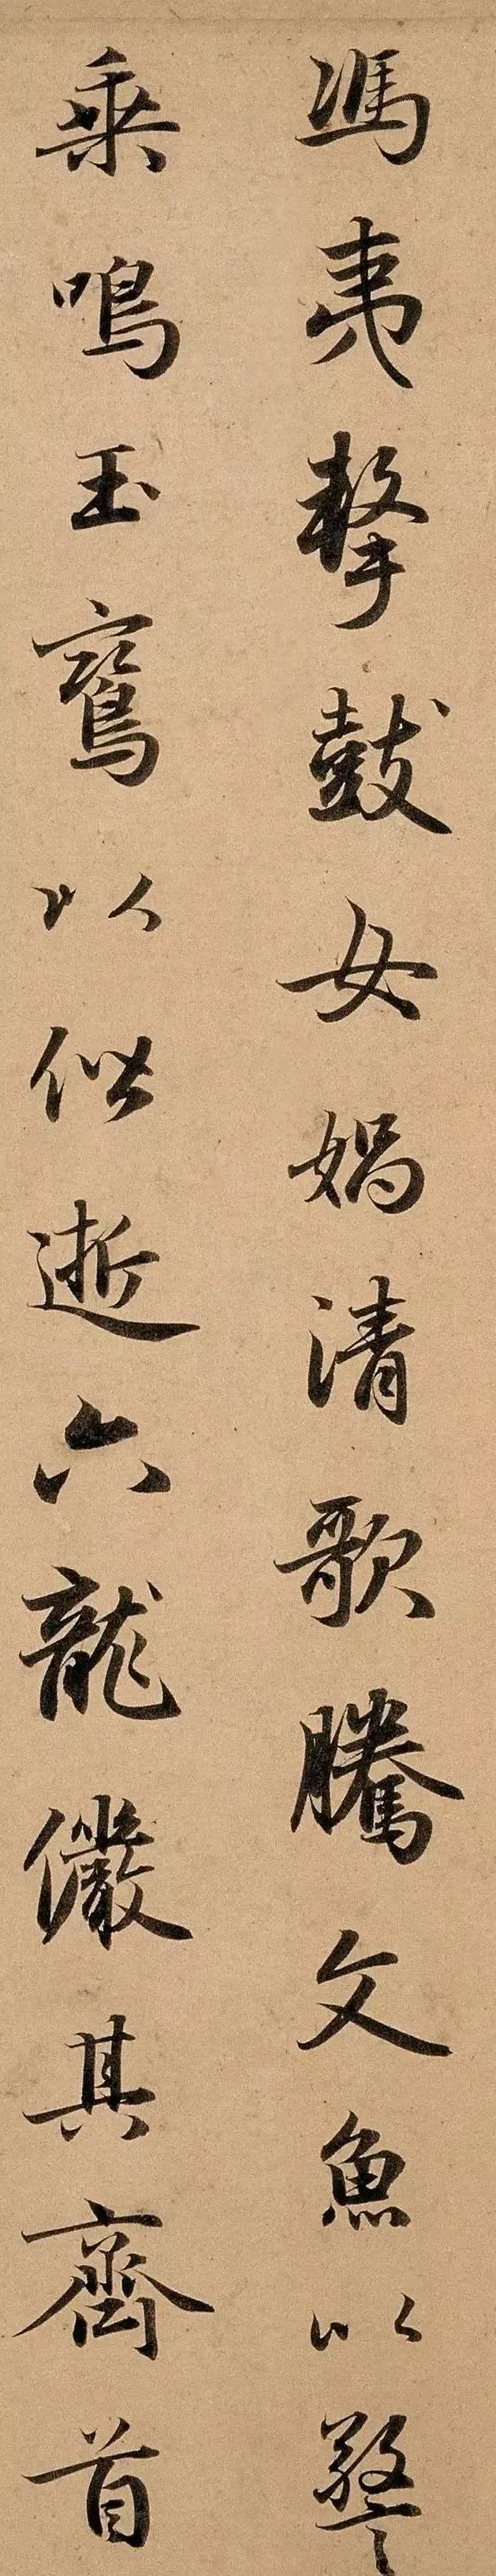 馮夷擊鼓女媧清歌騰文魚以警
乘鳴玉鸞以偕逝六龍儼其齊首